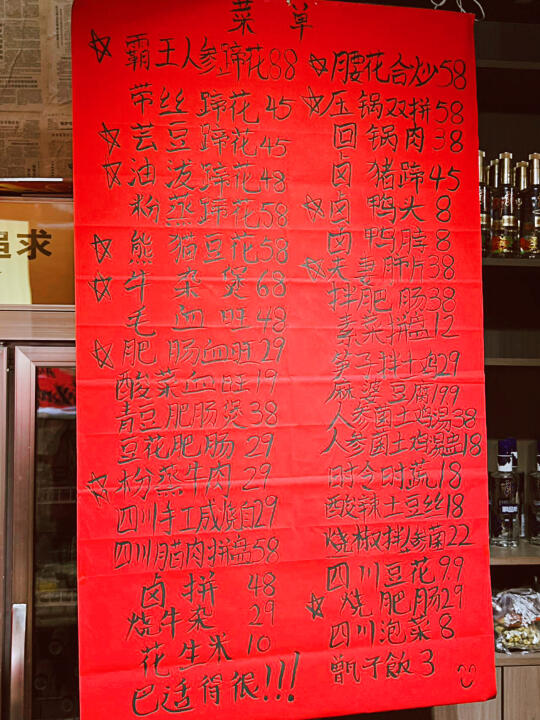 菜单
☆霸王人参蹄花38
带丝蹄花45
☆芸豆蹄花45
☆油泼蹄花48
粉蒸蹄花58
☆熊猫豆花58
☆牛杂煲68
毛血旺48
☆肥肠血旺29
酸菜血旺19
青豆肥肠煲38
豆花肥肠29
☆粉蒸牛肉29
四川手工咸烧白29
四川腊肉拼盘58
卤拼48
烧牛杂29
花生米10
巴适得很!!!
☆腰花合炒58
☆压锅双拼58
回锅肉38
卤猪蹄45
☆卤鸭头8
卤鸭脖8
☆夫妻肺片38
拌肥肠38
素菜拼盘12
笋子拌牛鸡29
麻婆豆腐199
人参菌土鸡汤38
人参菌土鸡汤盅18
时令时蔬18
酸辣土豆丝18
烧椒拌参菌22
四川豆花9.9
☆烧肥肠29
四川泡菜8
甑子飯3
追求